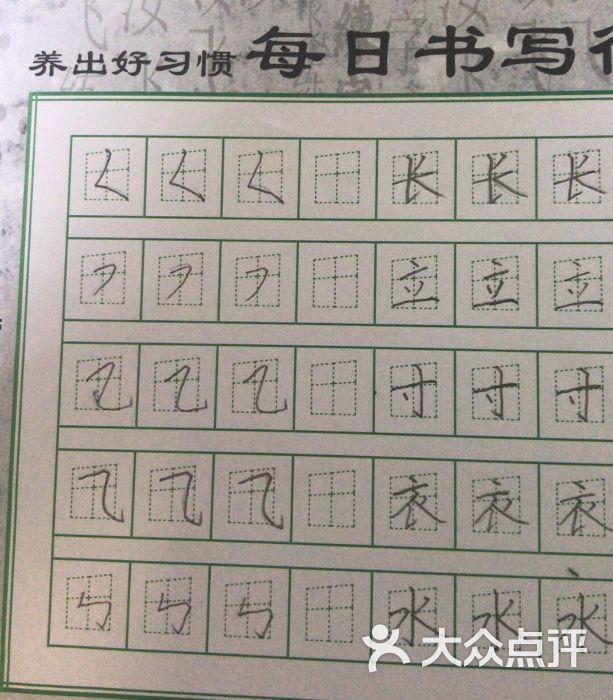 养出好习惯 每日书写
𡿨 𡿨 𡿨 长 长 长
㇇ ㇇ ㇇ 立 立 立
乙 乙 乙 寸 寸 寸
⺄ ⺄ ⺄ 衣 衣 衣
㇉ ㇉ ㇉ 水 水 水
大众点评